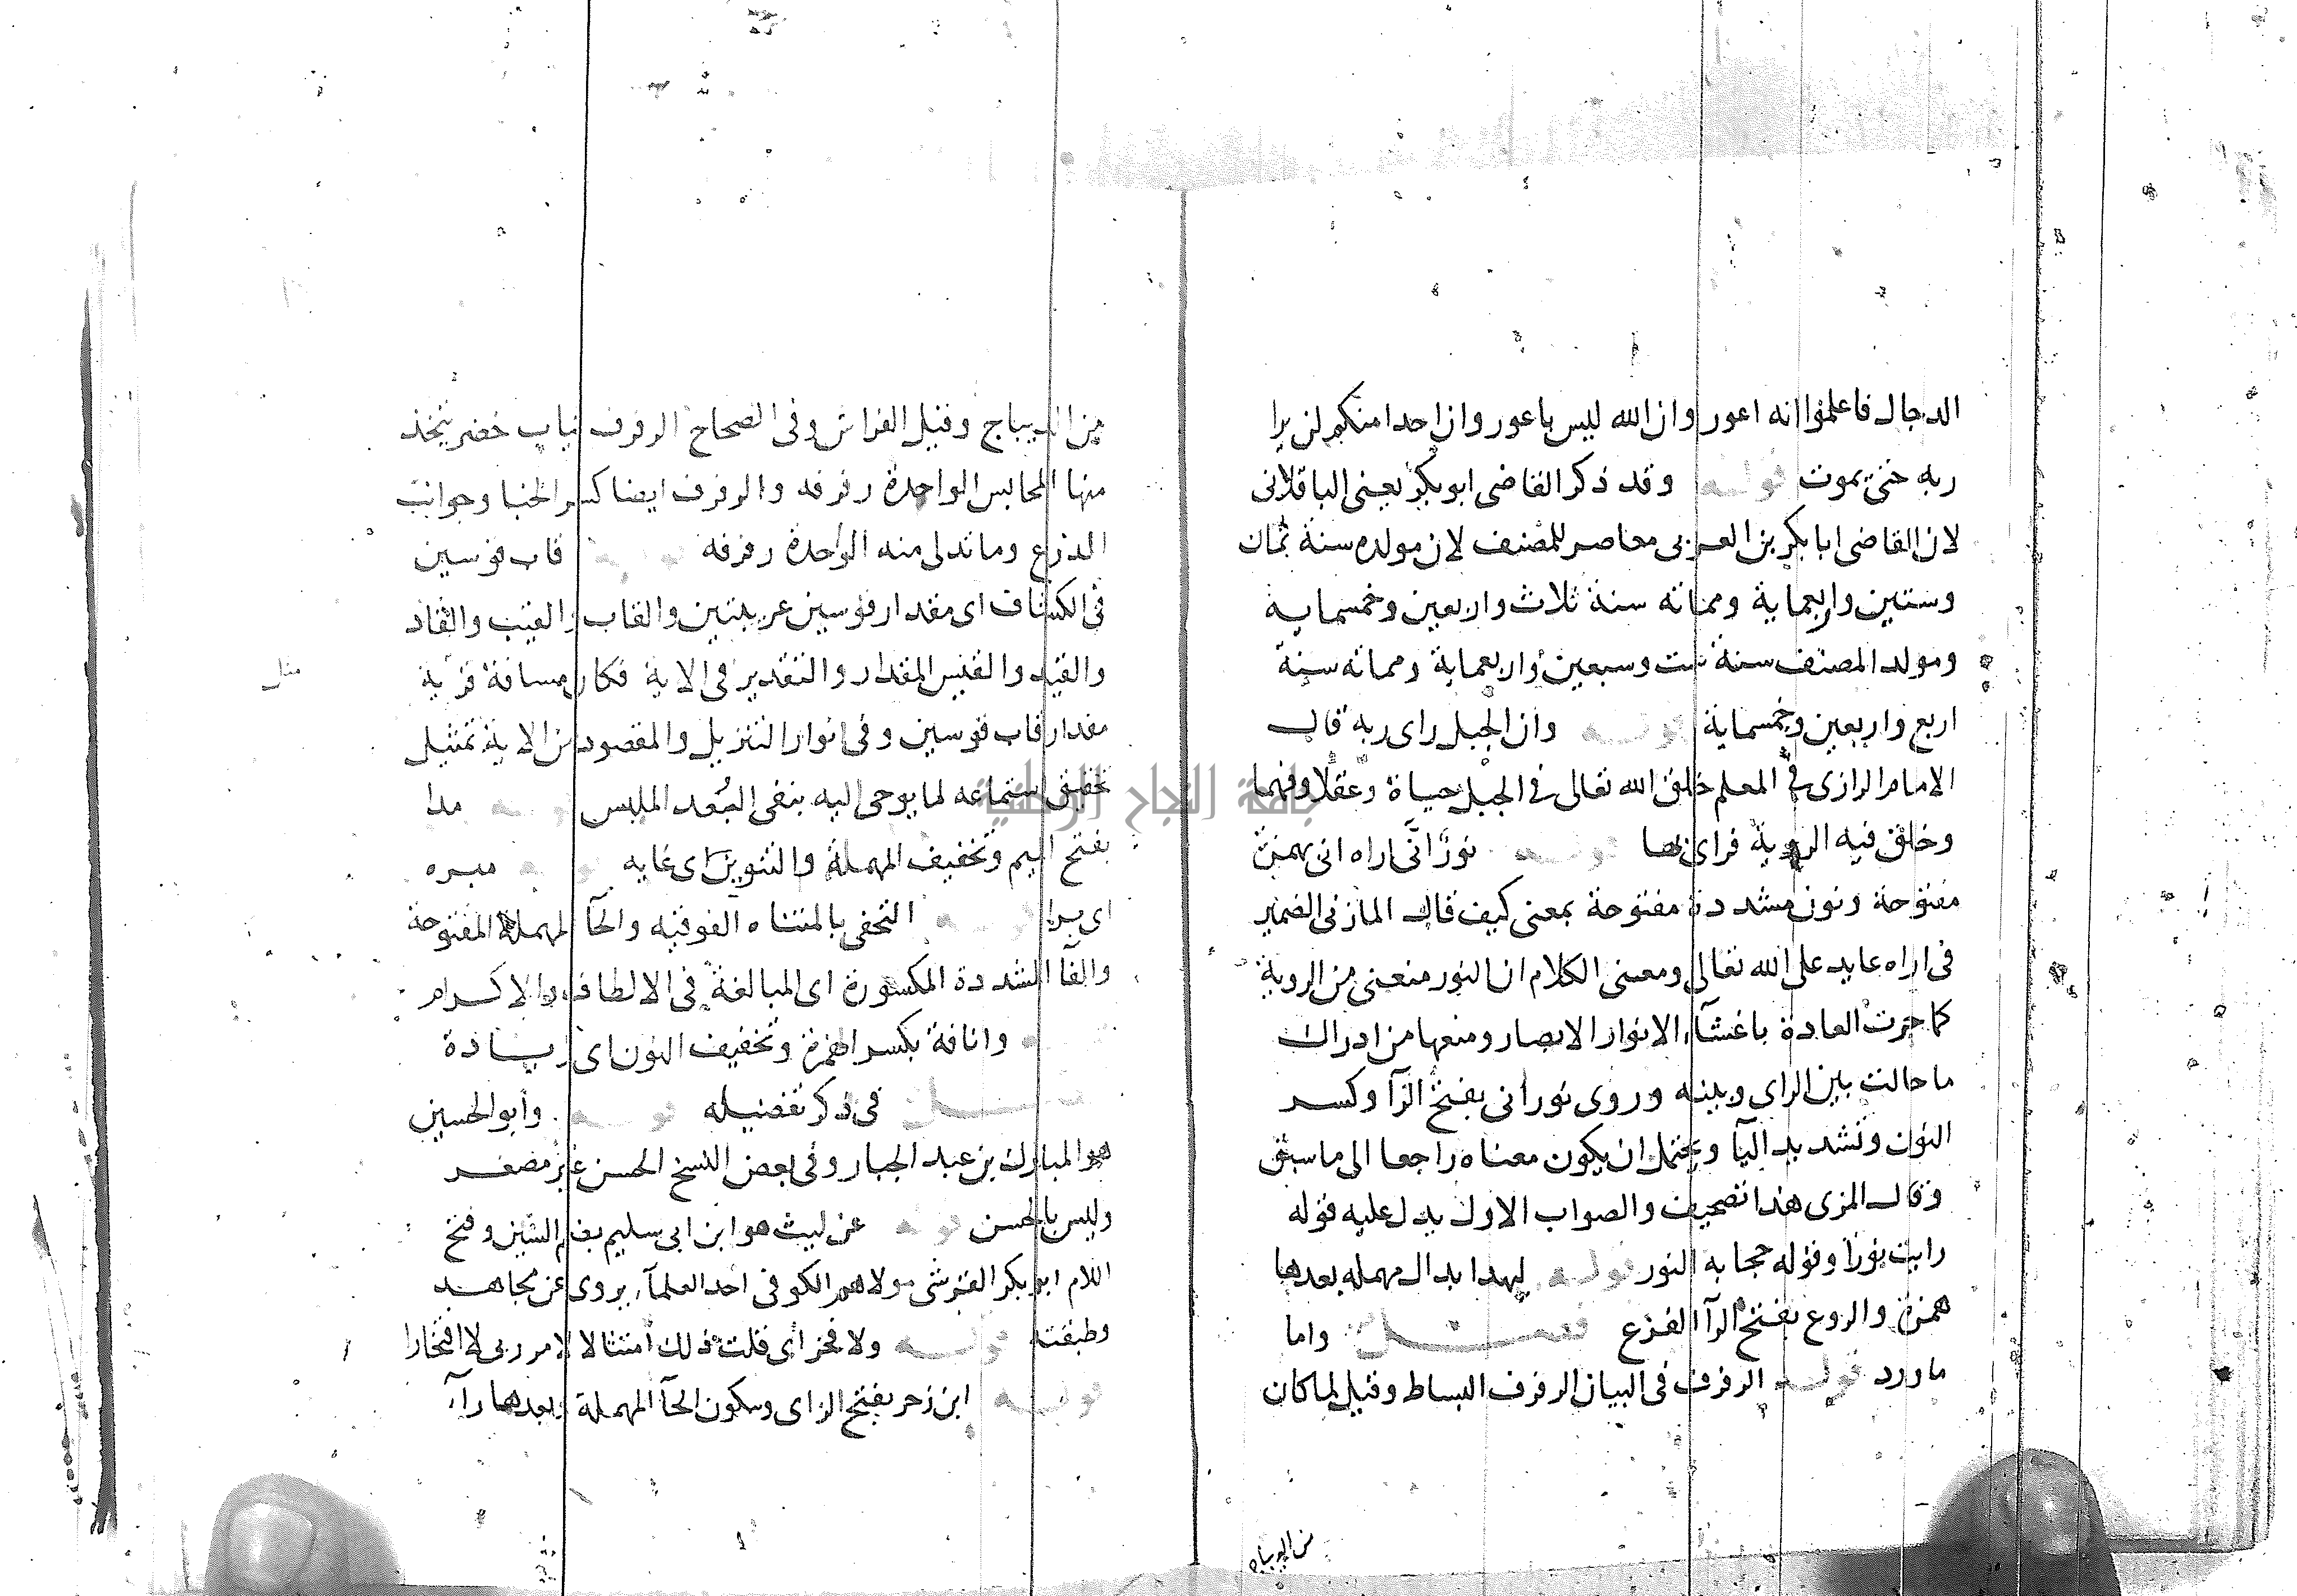 الدجال فاعلموا انه اعور وان الله ليس باعور وان احدا منكم لن يرا
ربه حتى يموت قوله وقد ذكر القاضى ابو بكر يعنى الباقلانى
لان القاضى ابا بكر بن العربى معاصر للمصنف لان مولده سنة ثمان
وستين واربعماية ومماته سنة ثلاث واربعين وخمسماية
ومولد المصنف سنة ست وسبعين واربعماية ومماته سنة
اربع واربعين وخمسماية قوله وان الجبل راى ربه قال
الامام الرازى فى المعلم خلق الله تعالى فى الجبل حياة وعقلا وفهما
وخلق فيه الروية فراى بها قوله نورٌ انَّى اراه انى بهمزة
مفتوحة ونون مشددة مفتوحة بمعنى كيف قال المازنى الضمير
فى اراه عايد على الله تعالى ومعنى الكلام ان النور منعنى من الروية
كما جرت العادة باغشآء الانوار الابصار ومنعها من ادراك
ما حالت بين الراى وبينه وروى نورانى بفتح الرآ وكسر
النون وتشديد اليآ ويحتمل ان يكون معناه راجعا الى ما سبق
وقال المزى هذا تصحيف والصواب الاول يدل عليه قوله
رايت نورا وقوله حجابه النور قوله ليهدا بدال مهمله بعدها
همزة والروع بفتح الرآ الفزع فصل واما
ما ورد قوله الرفرف فى البيان الرفرف البساط وقيل لما كان
من الديباج
من الديباج وقيل الفراش وفى الصحاح الرفرف ثياب خضر يتخذ
منها المحابس الواحدة رفرفه والرفرف ايضا كسر الخبا وجوانب
الدرع وما تدلى منه الواحدة رفرفه قوله قاب قوسين
فى الكشاف اى مقدار قوسين عربيتين والقاب والقيب والقاد
والقيد والقيس المقدار والتقدير فى الاية فكان مسافة قربه
مقدار قاب قوسين وفى انوار التنزيل والمقصود من الاية تمثيل
تحقيق استماعه لما يوحى اليه بنفى البُعد الملبس قوله مدا
بفتح الميم وتخفيف المهملة والتنوين اى غايه قوله مبره
اى برا قوله التحفى بالمثناه الفوقيه والحآ المهملة المفتوحة
والفآ المشددة المكسورة اى المبالغة فى الالطاف والاكرام
وانافة بكسر الهمزة وتخفيف النون اى زيادة
فصل فى ذكر تفضيله قوله وأبو الحسين
هو المبارك بن عبد الجبار وفى بعض النسخ الحسن غير مصغر
وليس بالحسن قوله عن ليث هو ابن ابى سليم بضم السين وفتح
اللام ابو بكر القرشى مولاهم الكوفى احد العلمآء يروى عن مجاهد
وطبقته قوله ولا فخر اى قلت ذلك امتثالا لامر ربى لا افتخارا
قوله ابن زحر بفتح الزاى وسكون الحآ المهملة بعدها رآء